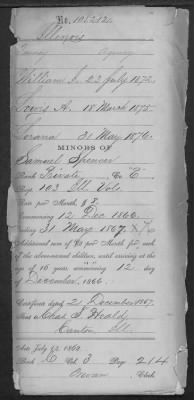 No. 106212
Illinois
Agency
William I. 22 July 1872.
Lewis A. 18 March 1875.
Lorana 31 May 1876.
MINORS OF
Samuel Spencer
Rank Private, Co. "E"
Reg. 103 Ill. Vols.
Rate per Month $8.
Commencing 12 Dec 1866.
Ending 31 May 1867.
Additional sum of $2 per Month for each
of the above-named children, until arriving at the
age of 16 years, commencing 12 day
of December, 1866.
Certificate dated 21 December 1867.
Chas. S. Heald,
Canton Ill.
Act July
Book C Vol. 3 Page 264
Clerk.